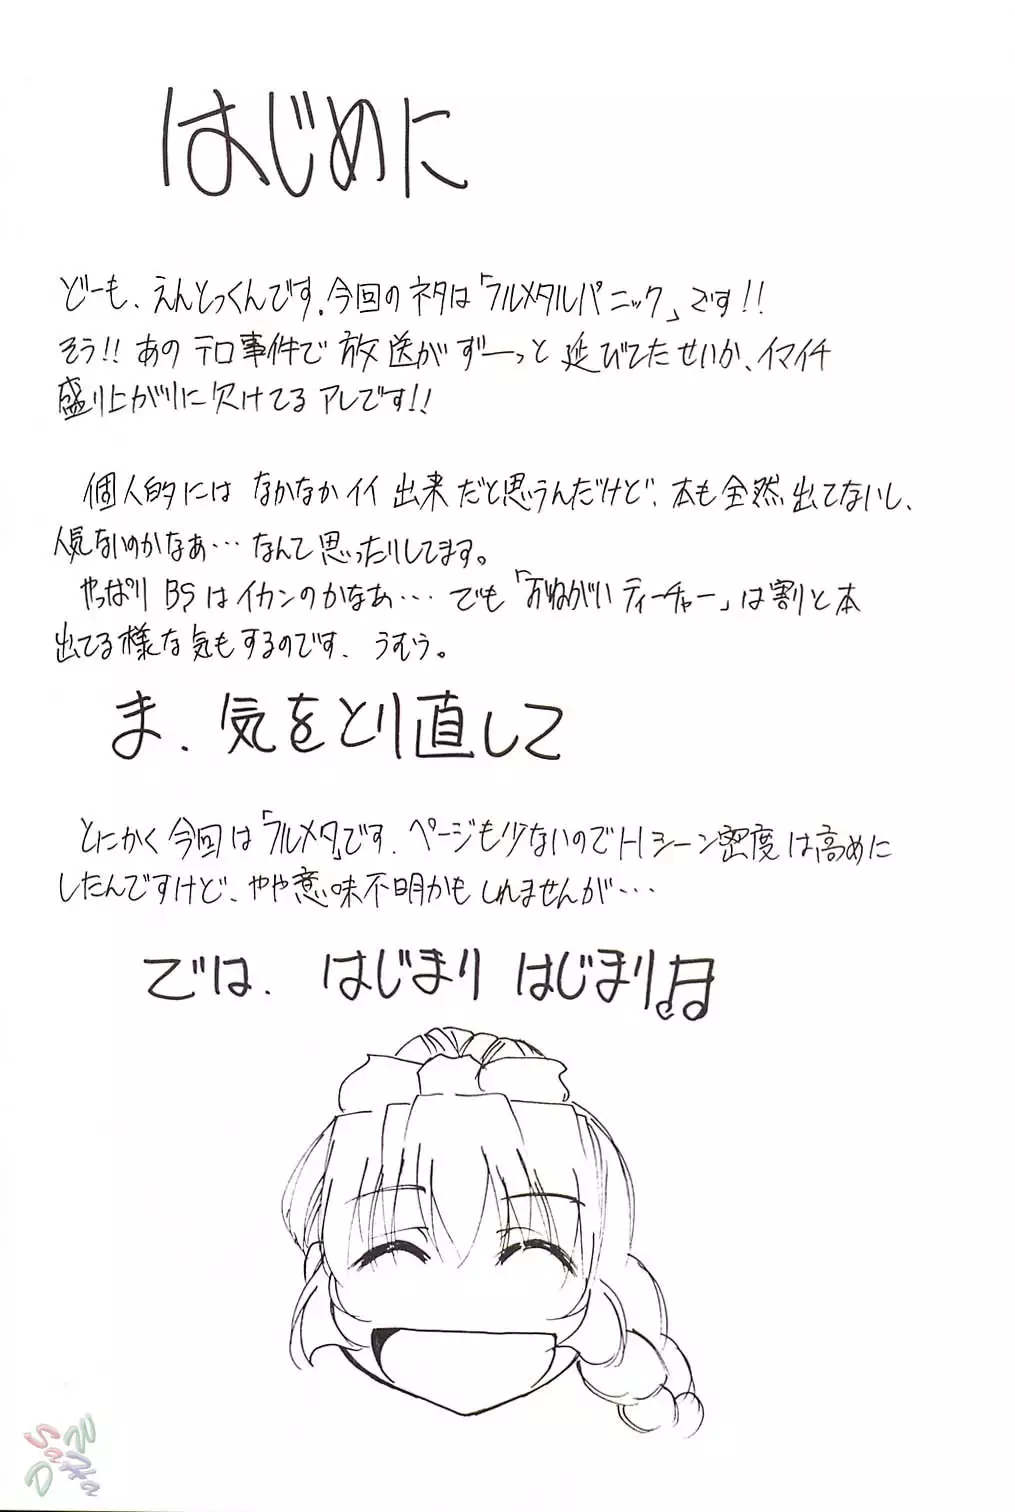 はじめに
どーも、えんとっくんです。今回のネタは「フルメタルパニック」です!!
そう!!あのテロ事件で放送がずーっと延びてたせいか、イマイチ
盛り上がりに欠けてるアレです!!
個人的にはなかなかイイ出来だと思うんだけど、本も全然出てないし、
人気ないのかなぁ…なんて思ったりしてます。
やっぱりBSはイカンのかなあ…でも「おねがいティーチャー」は割と本
出てる様な気もするのです、うむう。
ま、気をとり直して
とにかく今回は「フルメタ」です、ページも少ないのでHシーン密度は高めに
したんですけど、やや意味不明かもしれませんが…
では、はじまりはじまり♫
SaHa